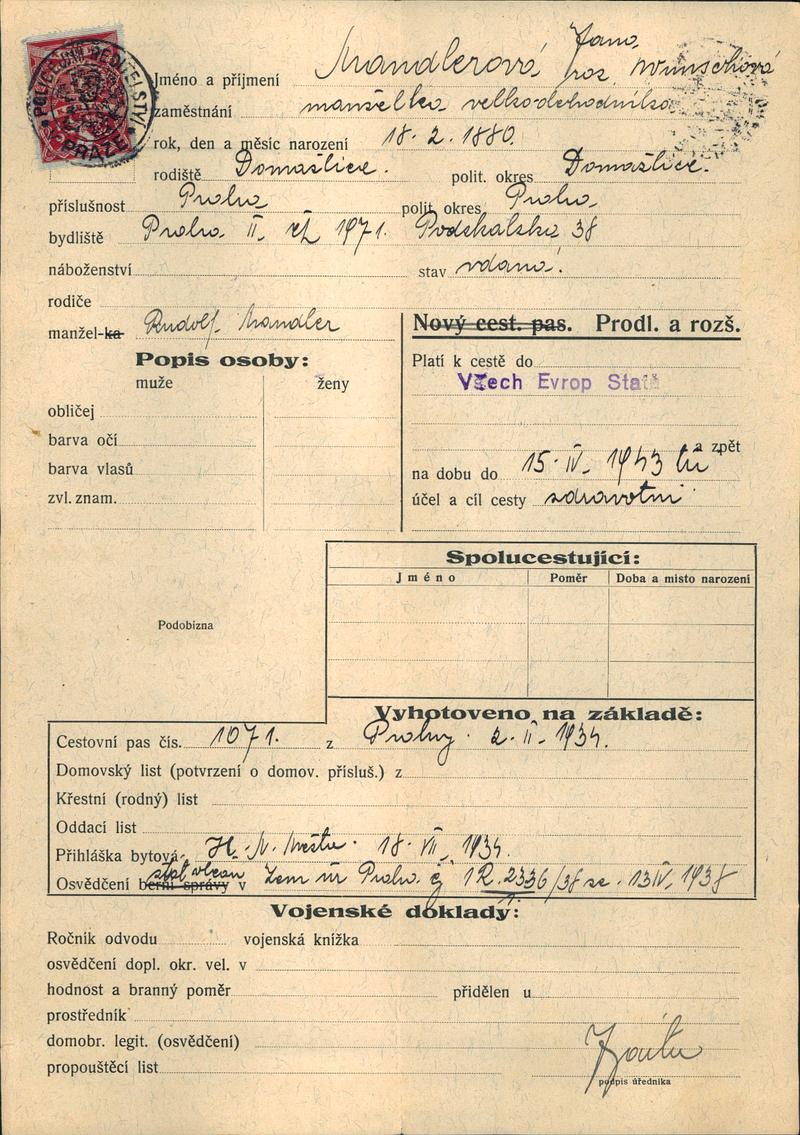 POLICEJNÍ ŘEDITELSTVÍ
PRAZE
Jméno a příjmení Mandlerová Jana, roz. Wunschová
zaměstnání manželka velkoobchodníka
rok, den a měsíc narození 18. 2. 1880.
rodiště Domažlice. polit. okres Domažlice.
příslušnost Praha polit. okres Praha
bydliště Praha II. čp. 1971. Podskalská 38
náboženství stav vdaná.
rodiče
manžel-ka Rudolf Mandler
Nový cest. pas. Prodl. a rozš.
Popis osoby:
muže ženy
obličej
barva očí
barva vlasů
zvl. znam.
Platí k cestě do
Všech Evrop Států
a zpět
na dobu do 15. IV. 1943
účel a cíl cesty zdravotní
Spolucestující:
Jméno Poměr Doba a místo narození
Podobizna
Vyhotoveno na základě:
Cestovní pas čís. 1071. z Prahy. 2. II. 1934.
Domovský list (potvrzení o domov. přísluš.) z
Křestní (rodný) list
Oddací list
Přihláška bytová H. N. Město. 18. VII. 1934.
Osvědčení berní správy stát. občan. v Zem. úř. Praha č. 1R. 2336/38 ze. 13 IV. 1938
Vojenské doklady:
Ročník odvodu vojenská knížka
osvědčení dopl. okr. vel. v
hodnost a branný poměr přidělen u
prostředník
domobr. legit. (osvědčení)
propouštěcí list
podpis úředníka